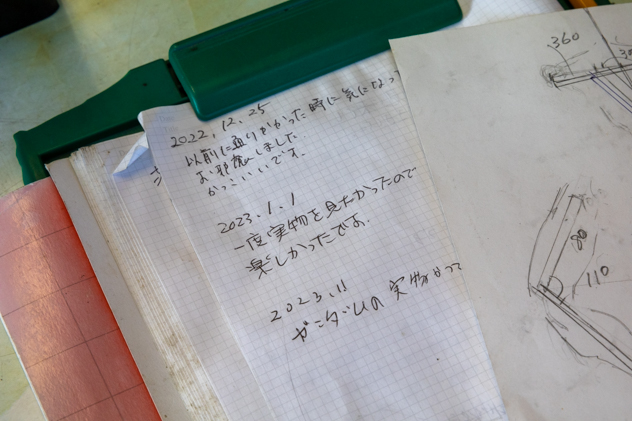 2022.12.25
以前に通りかかった時に気になっ
お邪魔しました.
かっこいいです.
2023.1.1
一度実物を見たかったので
楽しかったです.
2023.1.1
ガンダムの実物がって
360
80
110